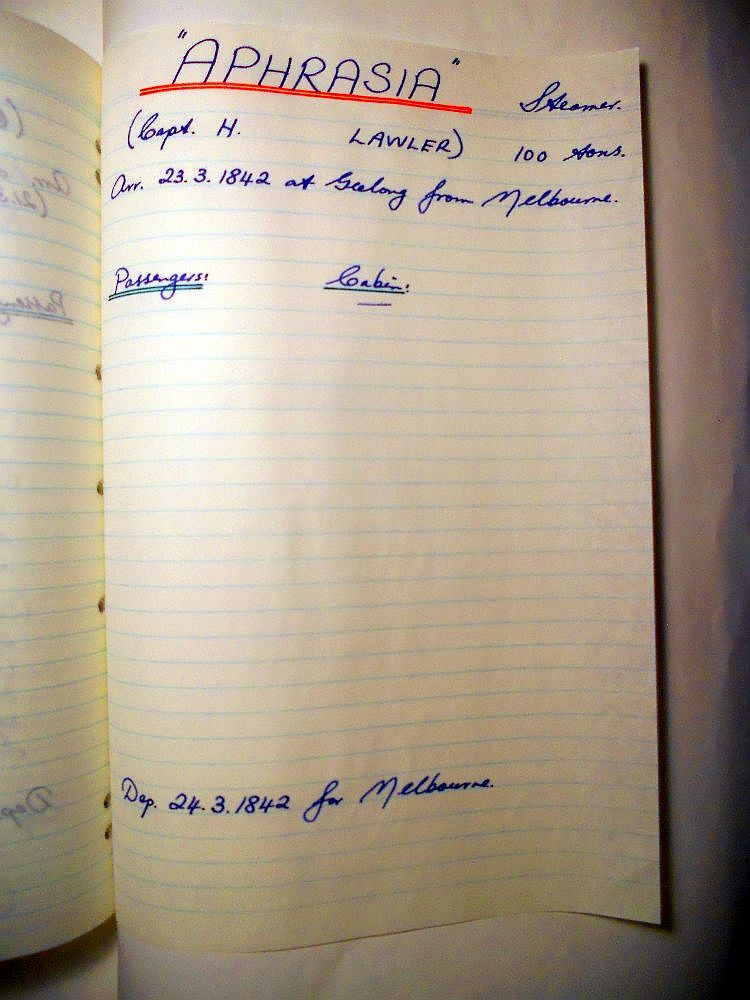 "APHRASIA" Steamer.
(Capt. H. LAWLER) 100 tons.
Arr. 23.3.1842 at Geelong from Melbourne.
Passengers: Cabin:
—
Dep. 24.3.1842 for Melbourne.